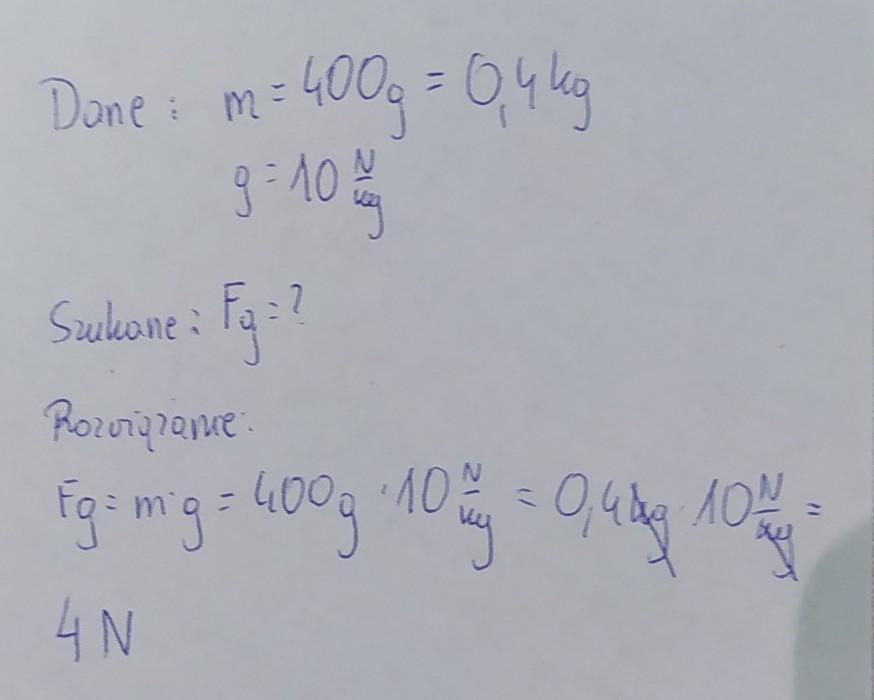 Dane: m = 400g = 0,4 kg
g = 10 N/kg
Szukane: Fg = ?
Rozwiązanie:
Fg = m·g = 400g · 10 N/kg = 0,4 kg · 10 N/kg =
4 N